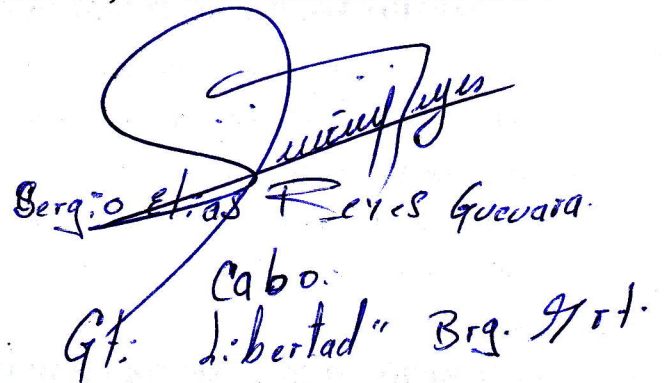 Sergio Elías Reyes Guevara.
Cabo.
Gt: Libertad" Brg. Art.